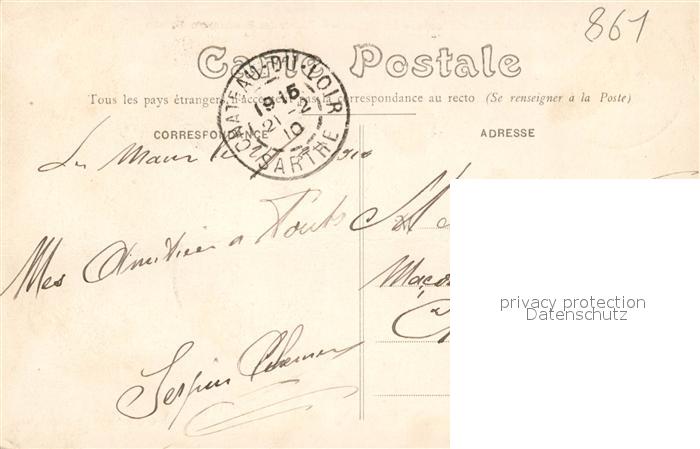 861
Carte Postale
Tous les pays étrangers n'acceptent pas la correspondance au recto (Se renseigner à la Poste)
CHATEAU-DU-LOIR
19 15
21-2
10
SARTHE
CORRESPONDANCE
ADRESSE
Le Mans le 1910
Mes Amitiés a Touts
M
Maçon
privacy protection
Datenschutz